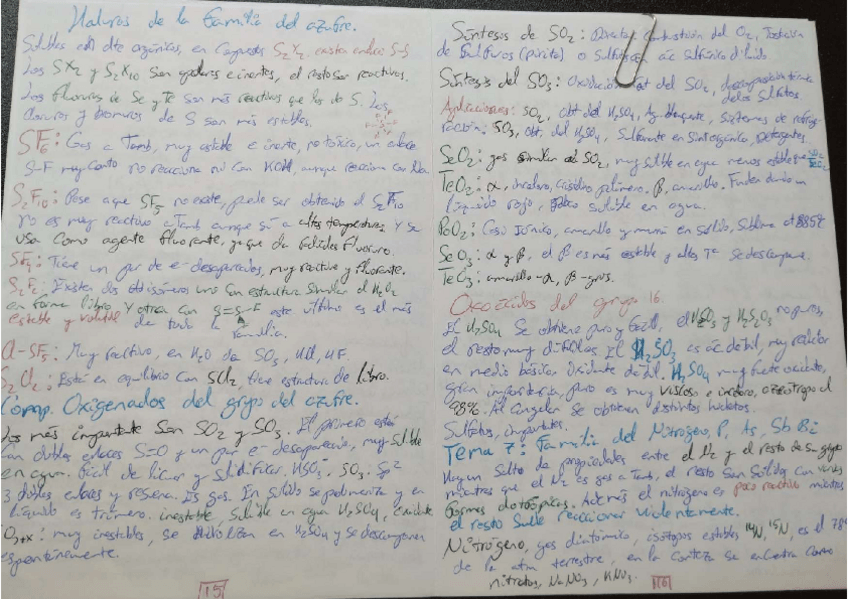 Haluros de la familia del azufre.
Solubles en dte orgánicos, en general S2X2 existe enlace S-S
Los SX2 y S2X10 son gaseosos e inertes, el resto son reactivos.
Los fluoruros de Se y Te son más reactivos que los de S. Los
cloruros y bromuros de S son más estables.
SF6: Gas a Tamb, muy estable e inerte, no tóxico, un enlace
S-F muy corto no reacciona ni con KOH, aunque reacciona con Na.
S2F10: Pese a que SF5 no existe, puede ser obtenido el S2F10
no es muy reactivo a Tamb aunque sí a altas temperaturas y se
usa como agente fluorante, ya que da
SF4: Tiene un par de e- desapareados, muy reactivo y fluorante.
S2F2: Existen dos isómeros uno con estructura similar al H2O2
en forma libro y otra con S=S-F este último es el más
estable y volátil de toda la familia.
Cl-SF5: Muy reactivo, en H2O da SO3, HCl, HF.
S2Cl2: Está en equilibrio con SCl2, tiene estructura de libro.
Comp. Oxigenados del grupo del azufre.
Los más importante son SO2 y SO3. El primero está
con dobles enlaces S=O y un par e- desapareado, muy soluble
en agua. Fácil de licuar y solidificar. SO3: sp2
3 dobles enlaces y resuena. Es gas. En sólido se polimeriza y en
líquido es trímero. inestable, Soluble en agua H2SO4, oxidante
muy inestables, se en H2SO4 y se descomponen
espontáneamente.
15
Síntesis de SO2: Directa, combustión del O2, Tostación
de Sulfuros (pirita) o Sulfitos en ác sulfúrico diluido
Síntesis del SO3: Oxidación cat del SO2, descomposición térmica
de los Sulfatos.
Aplicaciones: SO2, obt del H2SO4, Ag. blanqueante, Sistemas de refrig
SO3, obt. del H2SO4, Sulfonante en Sint orgánica, Detergentes.
SeO2: gas similar al SO2, muy soluble en agua menos estable que
TeO2: α, incoloro, polímero. β, amarillo. Funden dando un
líquido rojo, poco soluble en agua.
PoO2: Casi iónico, amarillo y en sólido, Sublima at 885ºC
SeO3: α y β, el β es más estable y altas Tª se descompone.
TeO3: amarillo-α, β-gris.
Oxoácidos del grupo 16.
El H2SO4 se obtiene puro y fácil, el H2SO3 y H2S2O3 no puros,
el resto muy difíciles. El H2SO3 es ác débil, muy reductor
en medio básico. Oxidante débil. H2SO4 muy fuerte oxidante,
gran importancia, puro es muy viscoso e incoloro, azeótropo al
98%. Al congelar se obtienen distintos hidratos.
Sulfatos, importantes.
Tema 7: Familia del Nitrógeno, P, As, Sb Bi
Hay un salto de propiedades entre el N2 y el resto de su grupo
mientras que el N2 es gas a Tamb, el resto son sólidos con varias
formas alotrópicas. Además el nitrógeno es poco reactivo mientras
el resto suele reaccionar violentamente.
Nitrógeno, gas diatómico, isótopos estables 14N, 15N, es el 78%
de la atm terrestre, en la corteza se encuentra como
nitratos, NaNO3, KNO3.
16